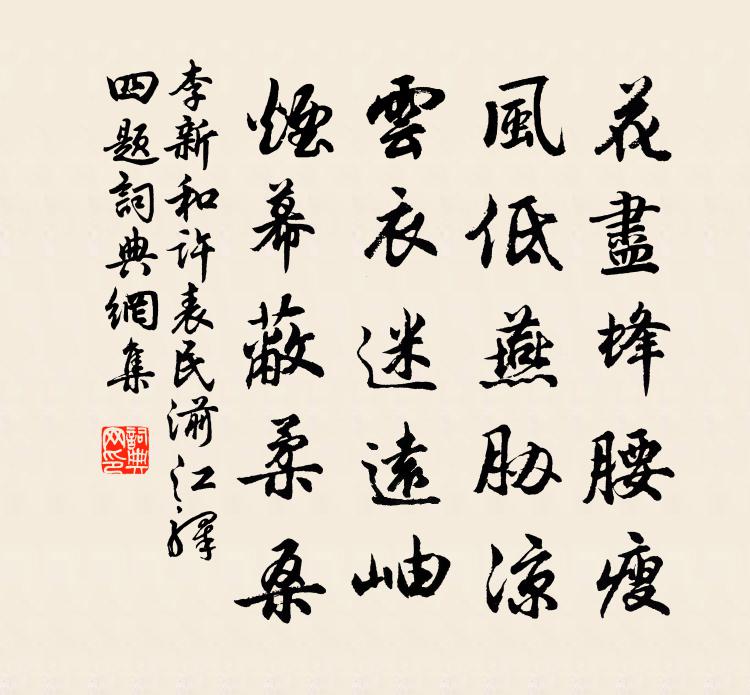 花盡蜂腰瘦
風低燕胁涼
雲衣迷遠岫
煙幕蔽柔桑
李新和許表民湔江驛
四題詞典網集
詞典網印